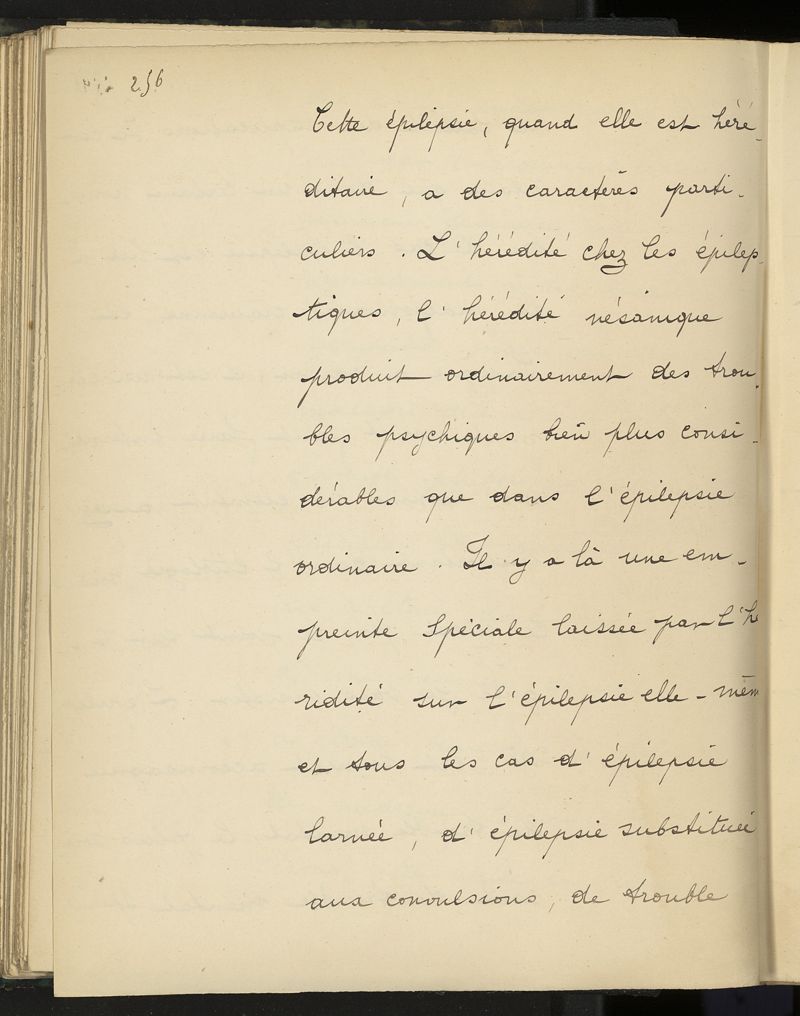 256
Cette épilepsie, quand elle est héré-
ditaire, a des caractères parti-
culiers. L'hérédité chez les épilep-
tiques, l'hérédité vésanique
produit ordinairement des trou-
bles psychiques bien plus consi-
dérables que dans l'épilepsie
ordinaire. Il y a là une em-
preinte spéciale laissée par l'hé
rédité sur l'épilepsie elle-mêm
et tous les cas d'épilepsie
larvée, d'épilepsie substituée
aux convulsions, de trouble